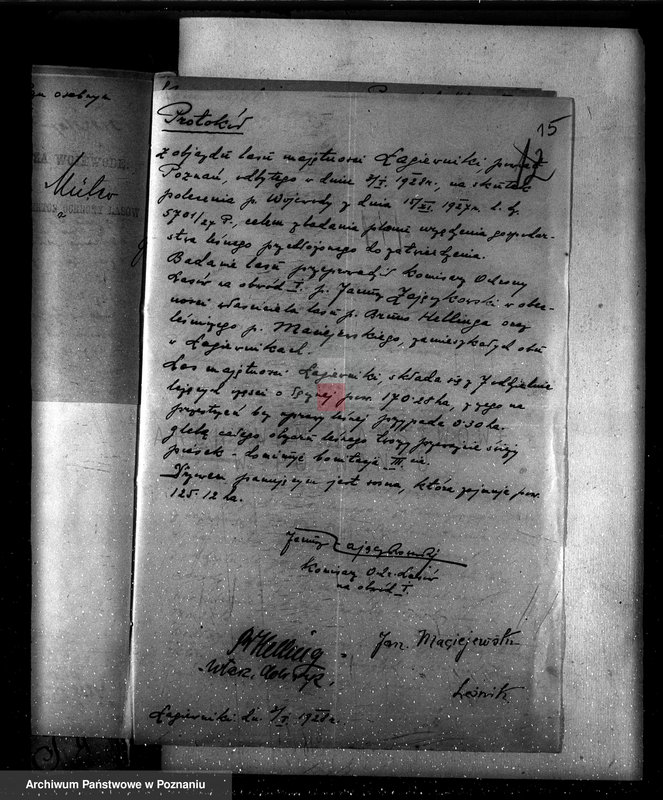 15
Protokół
z objazdu lasu majętności Łagiewniki, powiat
12
Poznań, odbytego w dniu 1928r., na skutek
polecenia p. Wojewody z dnia 15/XI. 1927r. L. dz.
5701/27 P., celem zbadania planu urządzenia gospodar-
stwa leśnego przedłożonego do zatwierdzenia.
Badanie lasu przeprowadził Komisarz Ochrony
Lasów na obwód I. p. Janusz Zajączkowski w obec-
ności właściciela lasu p. Bruno Hellinga oraz
leśniczego p. Maciejewskiego, zamieszkałych obu
w Łagiewnikach.
Las majętności Łagiewniki, składa się z 7 oddzielnie
leżących części o łącznej pow. 170.28 ha, z czego na
przestrzeń bez uprawy leśnej przypada 0.30 ha.
glebę całego obszaru leśnego tworzy przeważnie świeży
piasek - dominuje bonitacja III-cia.
Drzewem panującym jest sosna, która zajmuje pow.
125.12 ha.
Janusz Zajączkowski
Komisarz Ochr. Lasów
na obwód I.
Helling
Jan Maciejewski
Leśnik
Łagiewniki dn. 1928r.
Archiwum Państwowe w Poznaniu